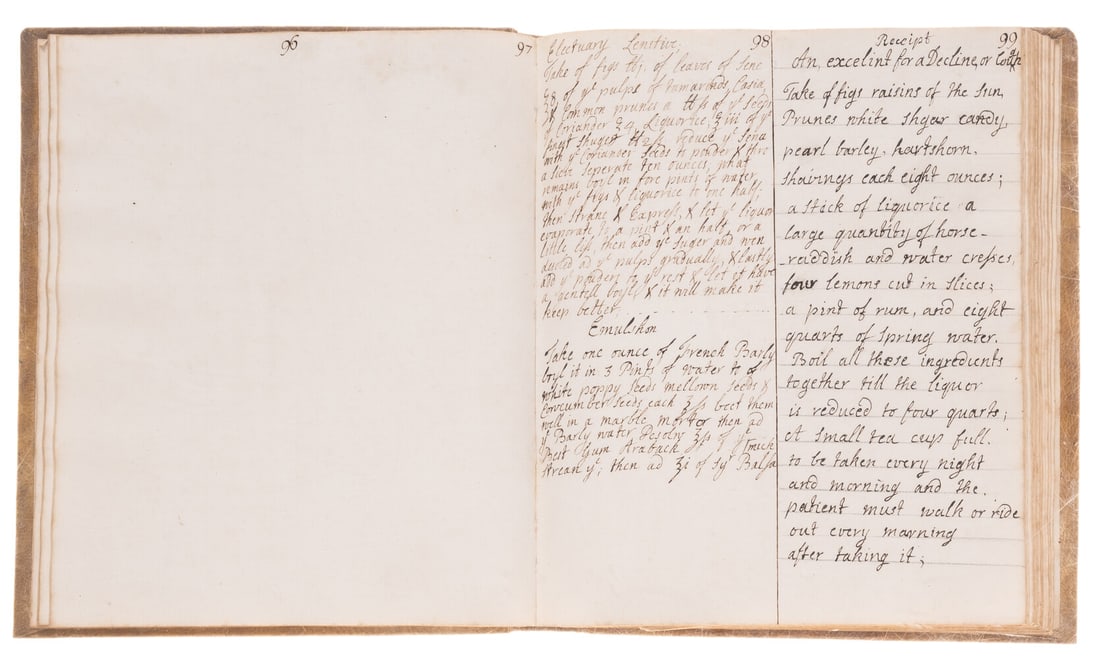 96
97
98
Electuary Lenitive;
Take of figs ℔j, of leaves of Sene
℥8, of yᵉ pulps of tamarinds, Casia,
& Common prunes a ℔ß of yᵉ Seeds
of Coriander ℥4, Liquorice, ℥iii of yᵉ
Shuger ℔2ß, reduce yᵉ Sena
with yᵉ Coriander Seeds to powder & fire
a Seperate ten ounces, what
remains boyl in fore pints of water,
with yᵉ figs & liquorice to one half,
then Strane & Express, & let yᵉ liquor
evaporate to a pint & an half, or a
little less, then add yᵉ Suger and wen
ad yᵉ pulps gradually, & lastly
add yᵉ pouder to yᵉ rest & let it have
a gentell boyl, & it will make it
keep better;
Emulshon
Take one ounce of French Barly
boyl it in 3 Pints of water to 2
white poppy Seeds mellown Seeds &
Cowcumber Seeds each ℥ß beet them
well in a marble morter then ad
yᵉ Barly water Desolv ℥ß of yᵉ
Best Gum Araback
Strean yᵉ; then ad ℥i of Syʳ Balsa
99
Receipt
An, excelint for a Decline, or Couth
Take of figs raisins of the Sun,
Prunes white Shgar candy,
pearl barley, hartshorn,
Shavinys each eight ounces;
a Stock of liquorice a
large quantity of horse-
-raddish and water cresses,
four lemons cut in slices;
a pint of rum, and eight
quarts of Spring water.
Boil all these ingredients
together till the liquor
is reduced to four quarts;
A Small tea cup full.
to be taken every night
and morning and the.
patient must walk or ride
out every marning
after taking it;